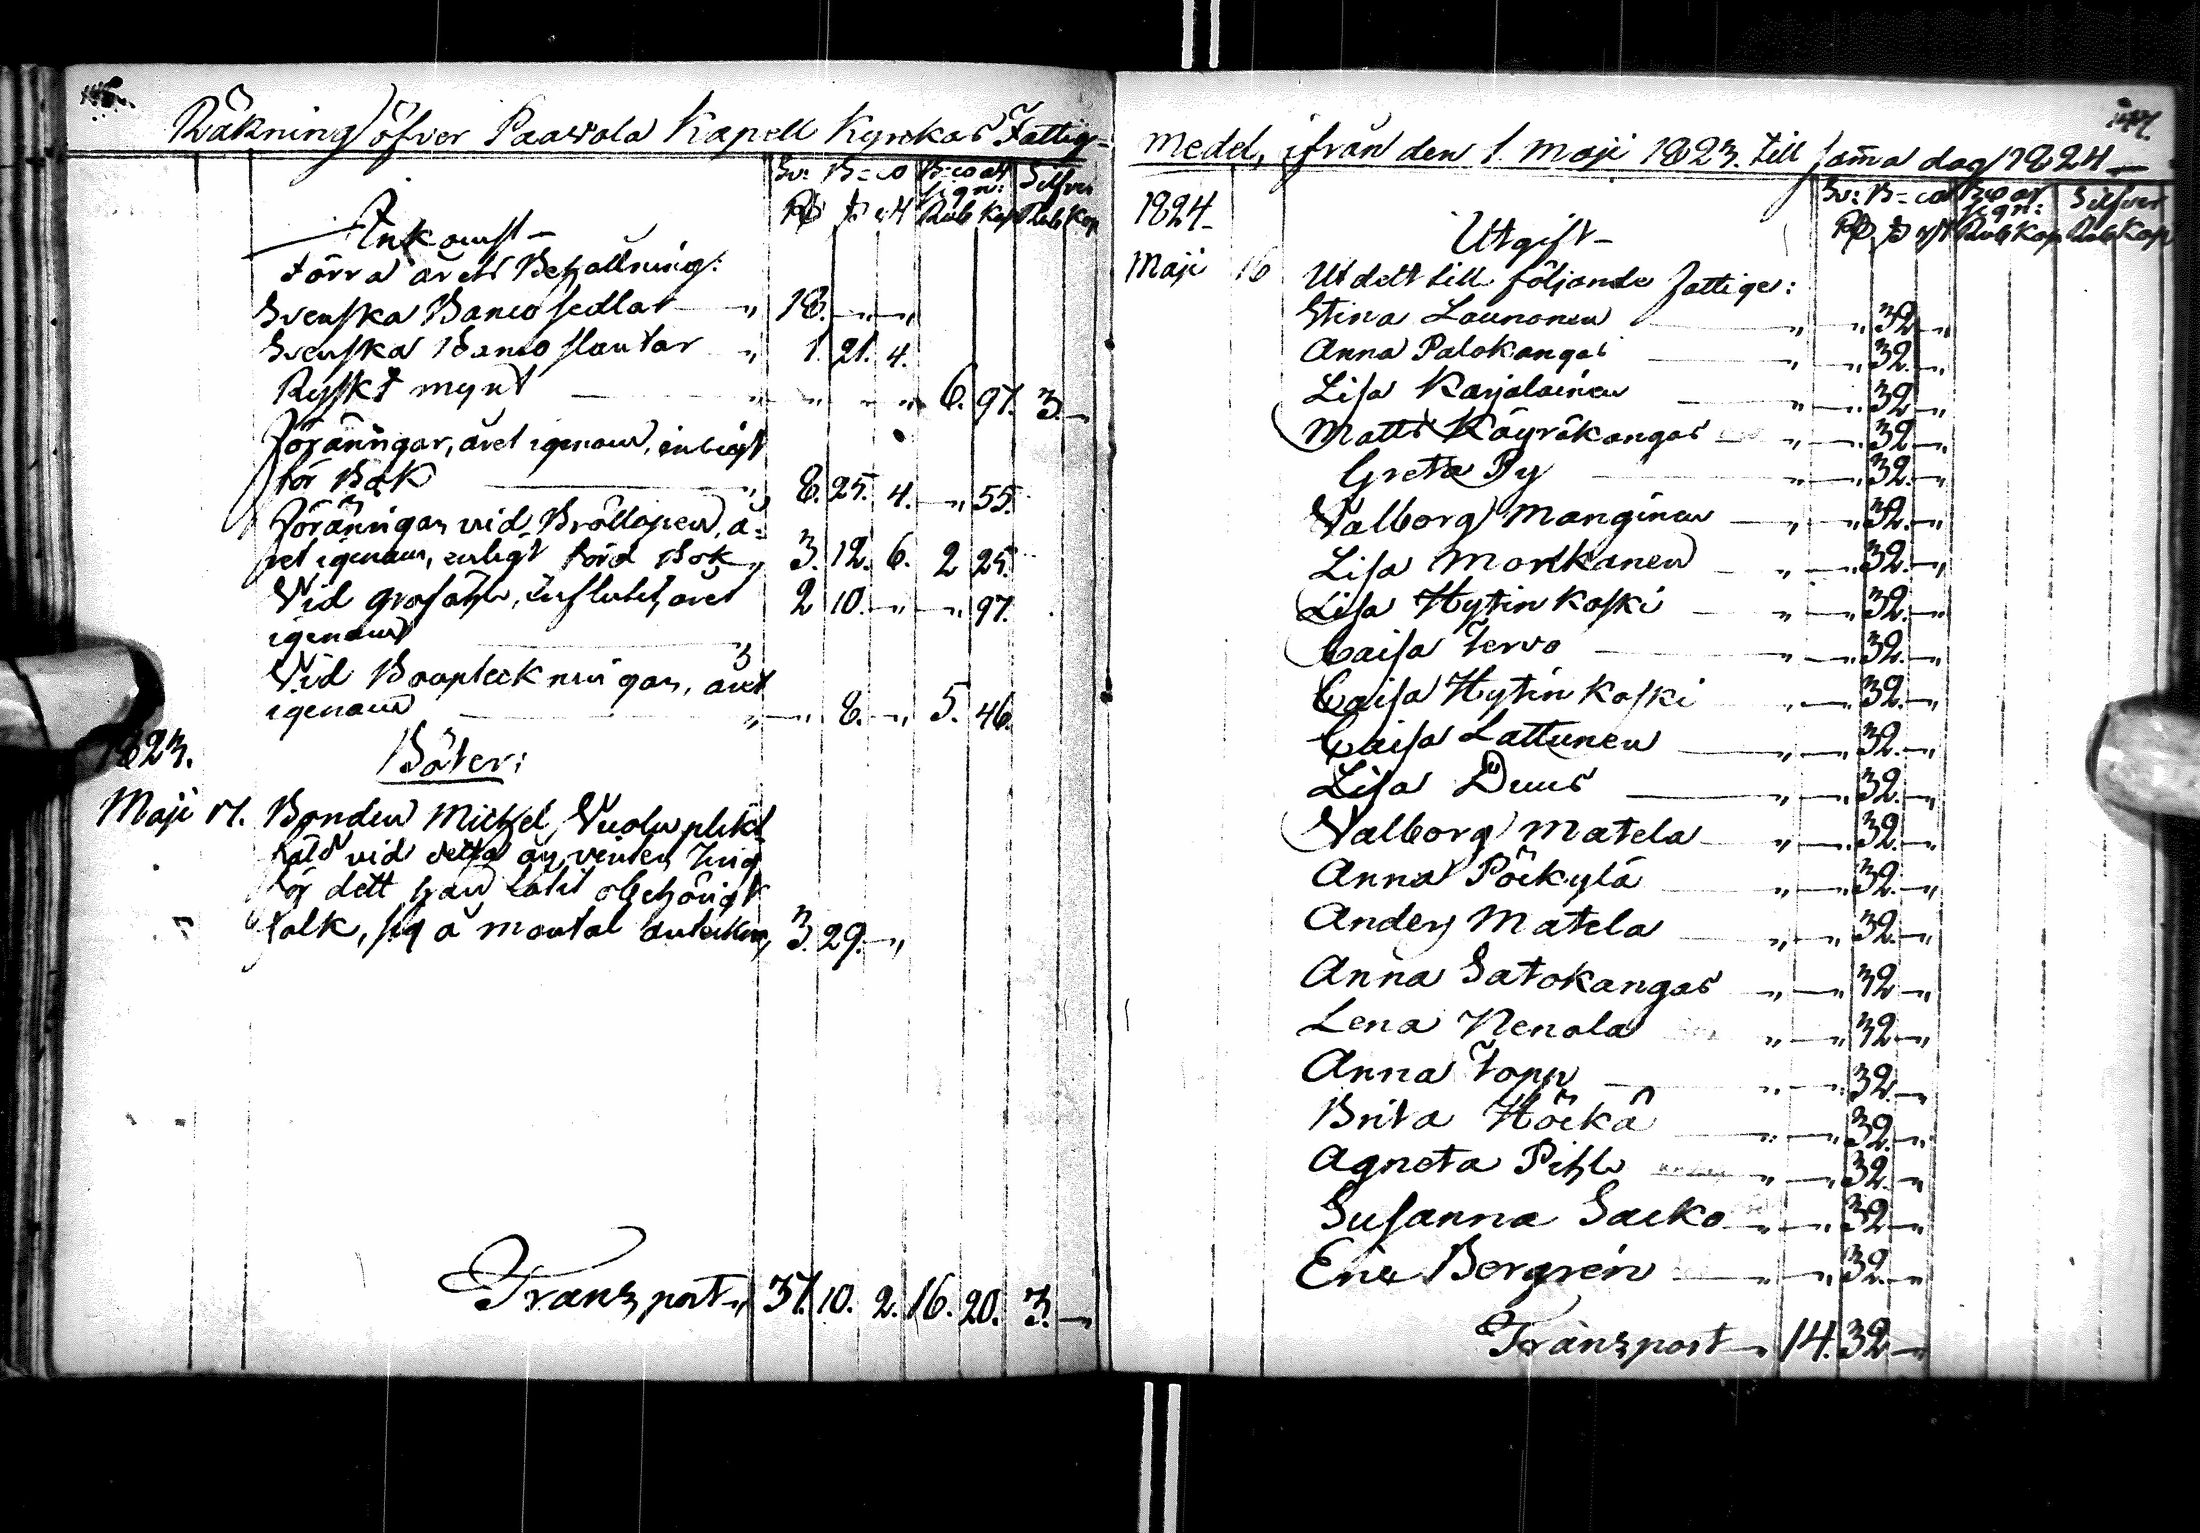 Räkning öfver Paavola Kapell Kyrkas Fattig-
Sv: B-co B-co ass Silfver
sign:
Rd s rst Rub Kop Rub Kop
Inkomst
Förra årets Behållning:
Svenska Banco sedlar " 18. — " — "
Svenska Banco slantar " 1. 21. 4.
Ryskt mynt " " " 6. 97. 3. —
Föräringar, året igenom, enligt
förd Bok " 8. 25. 4. — " 55.
Föräringar vid Bröllopen, å-
ret igenom, enligt förd Bok " 3. 12. 6. 2 25.
Vid graföhl, influtit, året 2 10. — " — " 97.
igenom
Vid Barnteckningar, året
igenom " — " 8. — " 5. 46.
1823.
Böter:
Maji 17. Bonden Michel Vuolu
vid Ting
för dett han låtit obehörigt
folk, sig å mantal 3. 29. — "
Transport " 37. 10. 2. 16. 20. 3. —
medel, ifrån den 1. Maji 1823. till samma dag 1824 —
Sv: B-co B-co ass Silfver
sign:
Rd s rst Rub Kop Rub Kop
1824.
Utgift
Maji 16 Utdelt till följande fattige:
Stina Launonen " — " 32 — "
Anna Palokangas " — " 32. — "
Lisa Karjalainen " — " 32 — "
Matts Käyräkangas " — " 32 — "
Greta Py " — " 32. — "
Valborg Manginen " — " 32. — "
Lisa Morkkanen " — " 32. — "
Lisa Hytinkoski " — " 32. — "
Caisa Tervo " — " 32. — "
Caisa Hytinkoski " — " 32. — "
Caisa Lattunen " — " 32. — "
Lisa Duus " — " 32. — "
Valborg Matela " — " 32. — "
Anna Pöckylä " — " 32. — "
Anders Matela " — " 32. — "
Anna Satokangas " — " 32 — "
Lena Nenola " — " 32 — "
Anna Topp " — " 32. — "
Brita Höckä " — " 32. — "
Agneta Pihl " — " 32. — "
Susanna Sacko " — " 32 — "
Eric Bergrén " — " 32. — "
Transport " 14. 32 — "